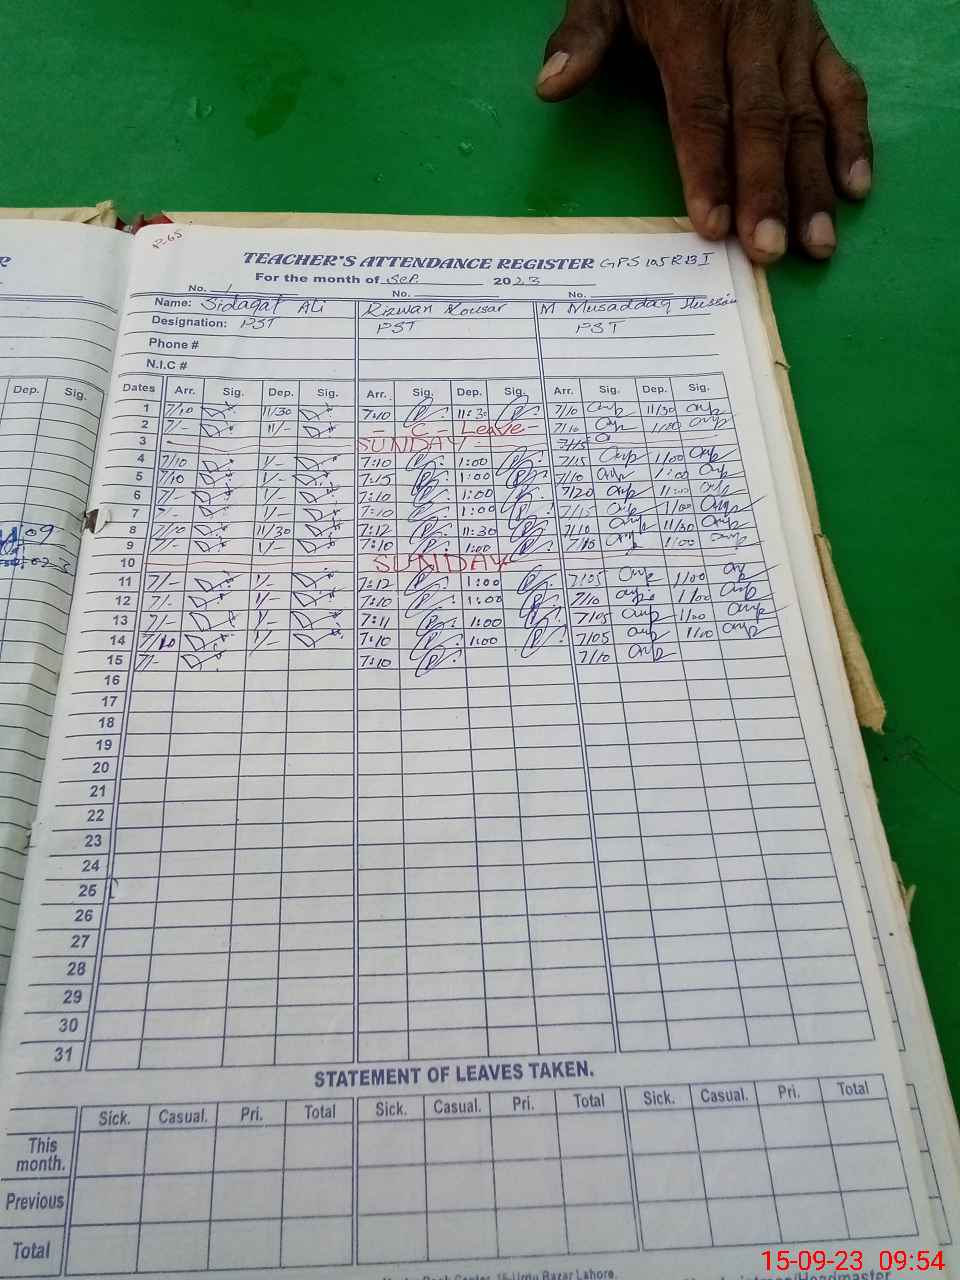 TEACHER'S ATTENDANCE REGISTER GPS 105 R B I
For the month of Sep. 2023
No. 1 No. No.
Name: Sidaqat Ali Rizwan Kousar M Musaddaq Hussain
Designation: PST PST PST
Phone #
N.I.C #
Dep. Sig. Dates Arr. Sig. Dep. Sig. Arr. Sig. Dep. Sig. Arr. Sig. Dep. Sig.
1 7/10 11/30 7:10 11:30 7/10 11/30
2 7/- 11/- - C - Leave - 7/10 1/00
3 SUNDAY 7/15
4 7/10 1/- 7:10 1:00 7/15 1/00
5 7/10 1/- 7:15 1:00 7/10 1:00
6 7/- 1/- 7:10 1:00 7/20
7 7/- 1/- 7:10 1:00 7/15 1/00
8 7/10 11/30 7:12 11:30 7/10 11/30
9 7/- 1/- 7:10 1:00 7/15 1/00
10 SUNDAY
11 7/- 1/- 7:12 1:00 7/05 1/00
12 7/- 1/- 7:10 1:00 7/10 1/00
13 7/- 1/- 7:11 1:00 7/05 1/00
14 7/10 1/- 7:10 1:00 7/05 1/00
15 7/- 7:10 7/10
16
17
18
19
20
21
22
23
24
25
26
27
28
29
30
31
STATEMENT OF LEAVES TAKEN.
Sick. Casual. Pri. Total Sick. Casual. Pri. Total Sick. Casual. Pri. Total
This
month.
Previous
Total
Urdu Bazar Lahore.
15-09-23 09:54